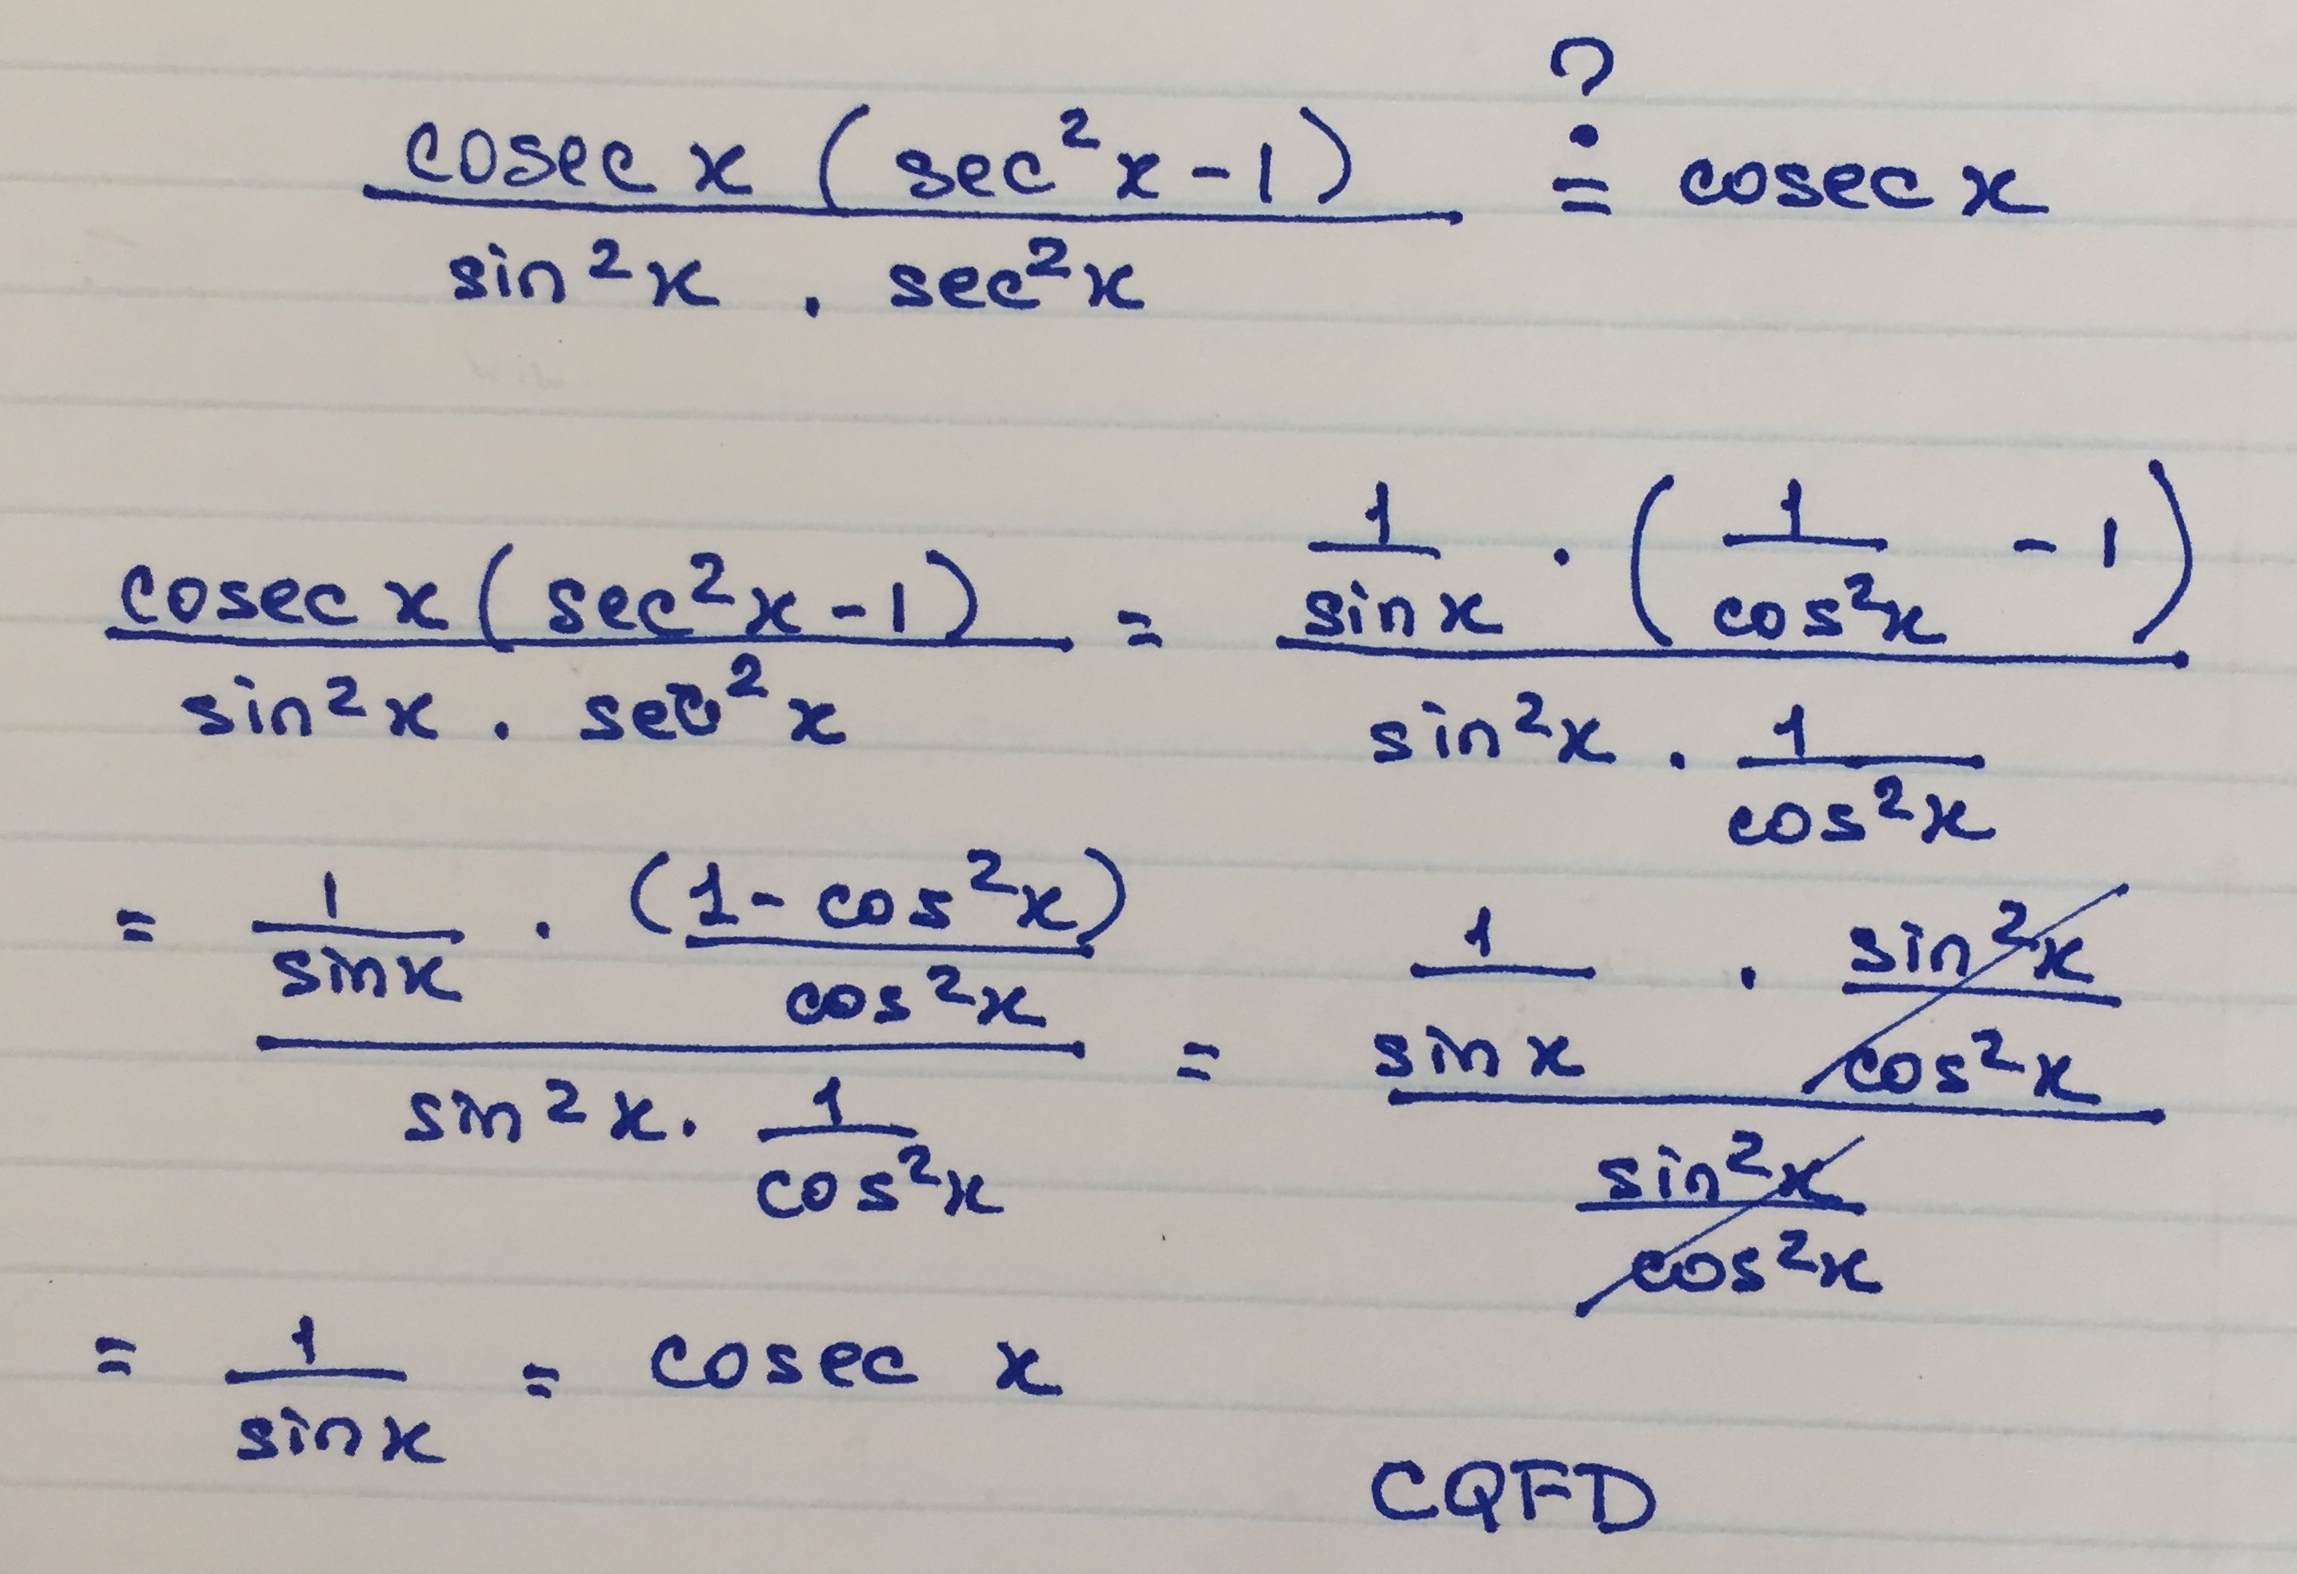 cosec x (sec²x-1) / sin²x . sec²x ?= cosec x
cosec x (sec²x-1) / sin²x . sec²x = 1/sinx . (1/cos²x - 1) / sin²x . 1/cos²x
= 1/sinx . (1-cos²x)/cos²x / sin²x . 1/cos²x = 1/sinx . sin²x/cos²x / sin²x/cos²x
= 1/sinx = cosec x
CQFD